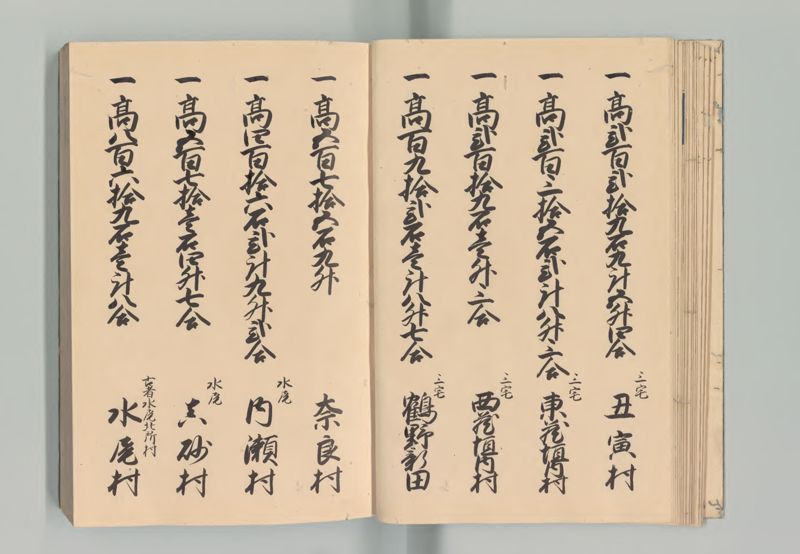 一 高弐百弐拾九石九斗五升四合
三宅 丑寅村
一 高弐百三拾五石弐斗八升三合
三宅 東蔵垣内村
一 高弐百拾九石壱升三合
三宅 西蔵垣内村
一 高百九拾弐石壱斗八升七合
三宅 鶴野新田
一 高五百七拾五石九升
奈良村
一 高四百拾六石弐斗九升弐合
水尾 内瀬村
一 高五百七拾壱石四升七合
水尾 真砂村
一 高八百六拾九石壱斗八合
古者水尾北所村 水尾村